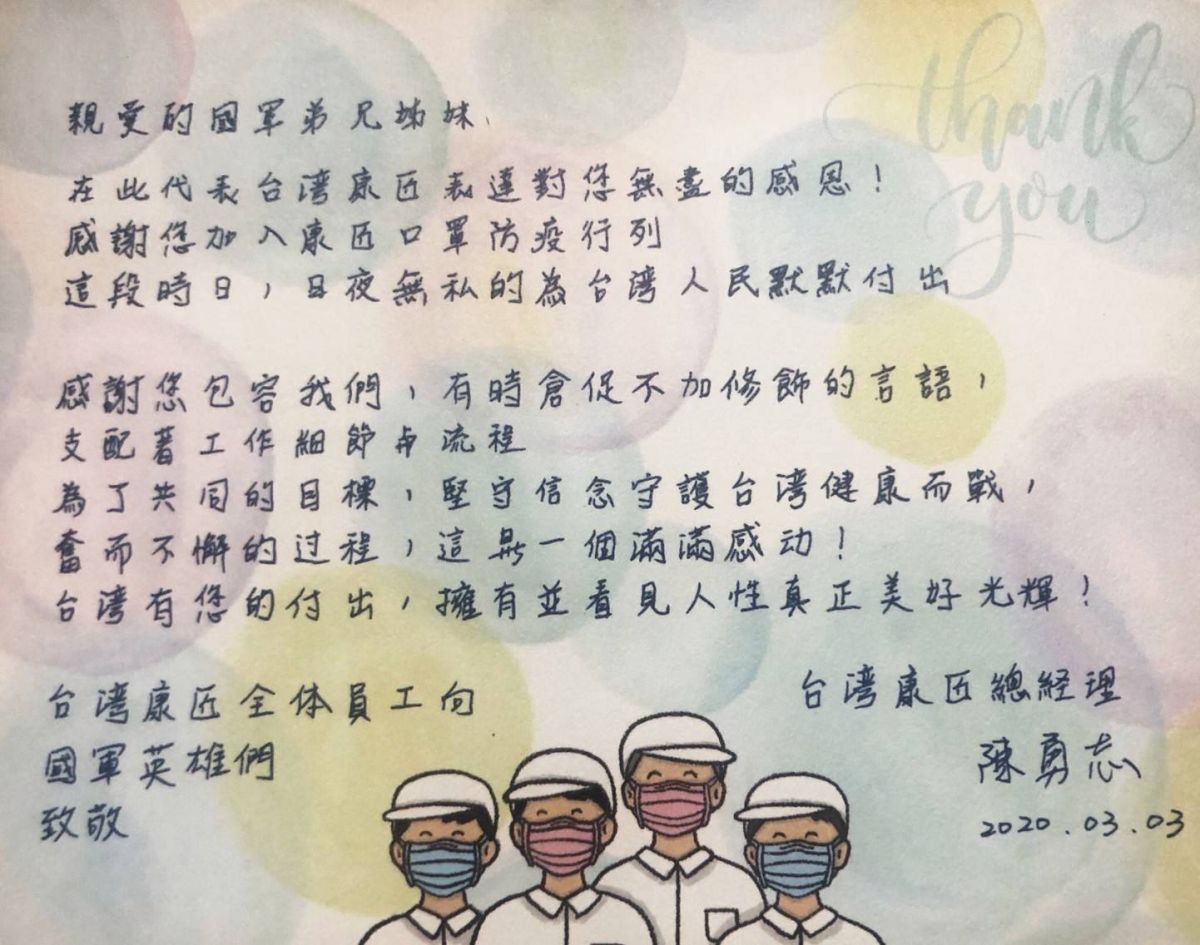 thank
you
親愛的國軍弟兄姊妹、
在此代表台湾康匠表達對您無盡的感恩！
感謝您加入康匠口罩防疫行列
這段時日，日夜無私的為台湾人民默默付出
感謝您包容我們，有時倉促不加修飾的言語，
支配著工作細節与流程
為了共同的目標，堅守信念守護台湾健康而戰，
奮而不懈的过程，這是一個滿滿感动！
台湾有您的付出，擁有並看見人性真正美好光輝！
台湾康匠全体員工向
國軍英雄們
致敬
台湾康匠總経理
陳勇志
2020.03.03